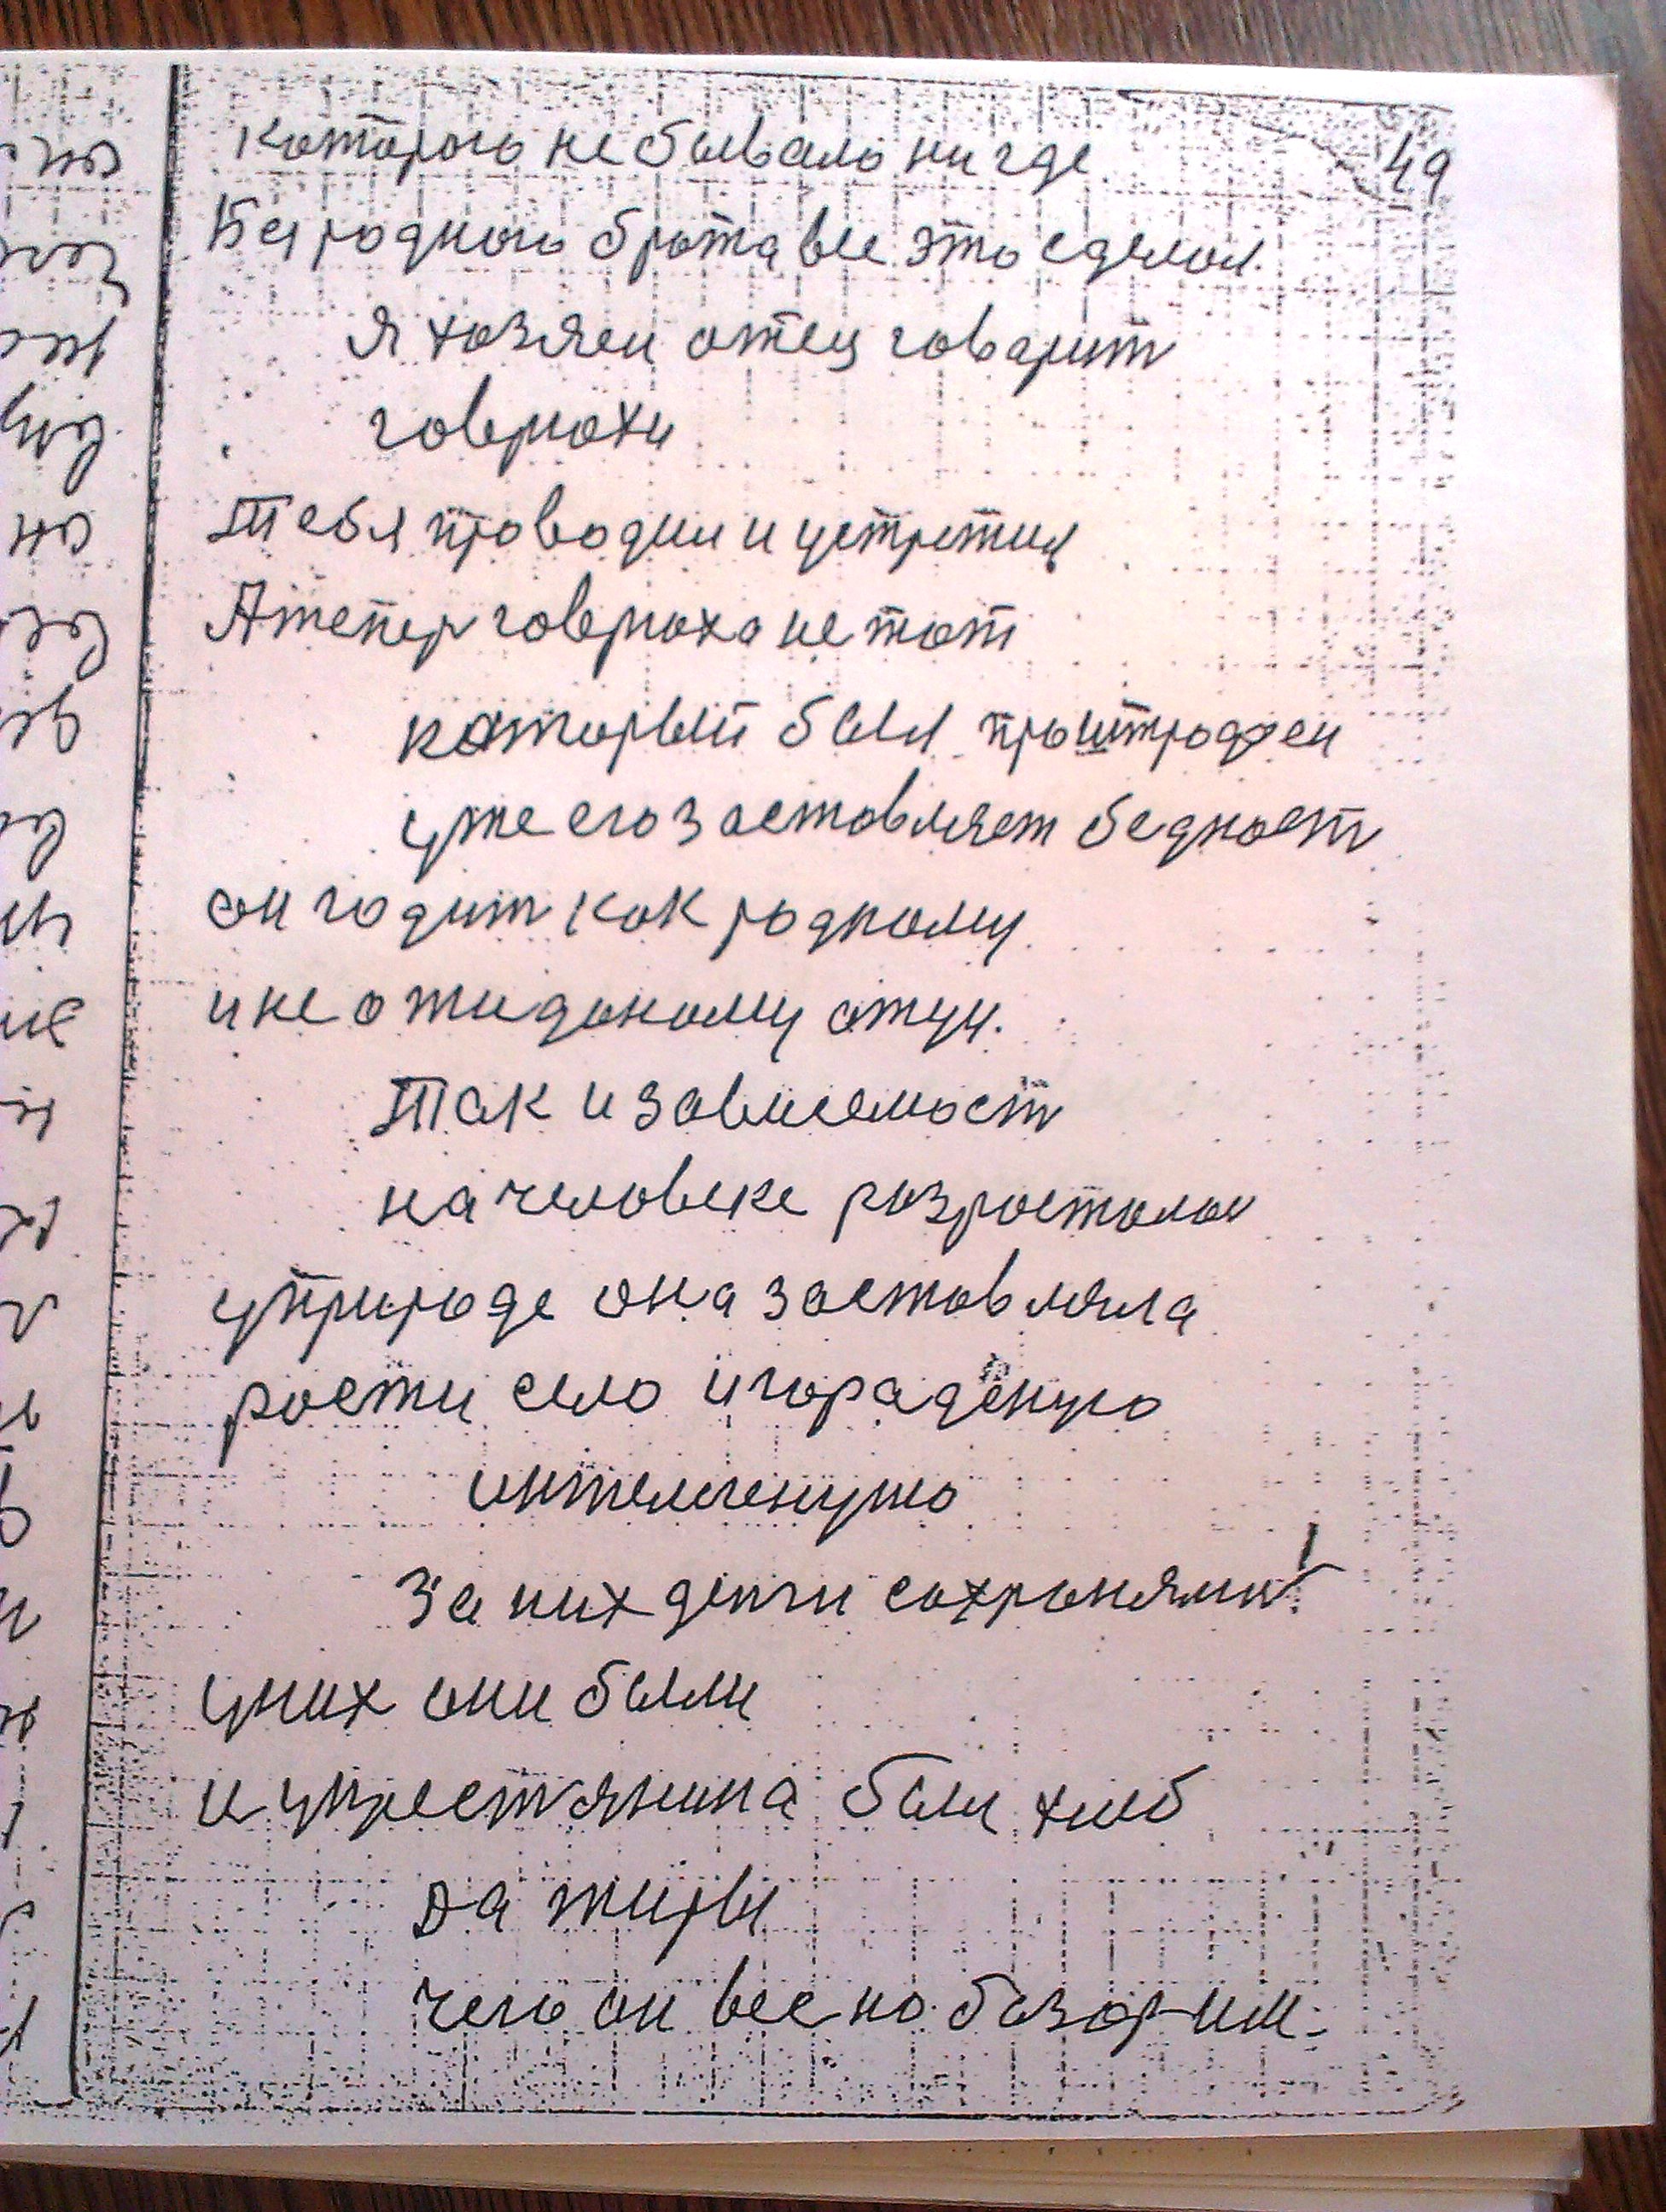 49
которого не бывало ни где
Без родного брата все это сделал.
я хозяен отец говарит
говрюхи
Тебя проводил и устретил
А тепер говрюха не тот
каторый был проштрафен
уже его заставляет бедност
он годит как родному
и не ожиданому отцу.
Так и зависемост
на человеке розросталас
у природе она заставляла
рости село и гораденую
интелегенцую
За них денги сохраняли!
у них они были
и у крестянина был хлеб
да жиры
чего он все на базар им